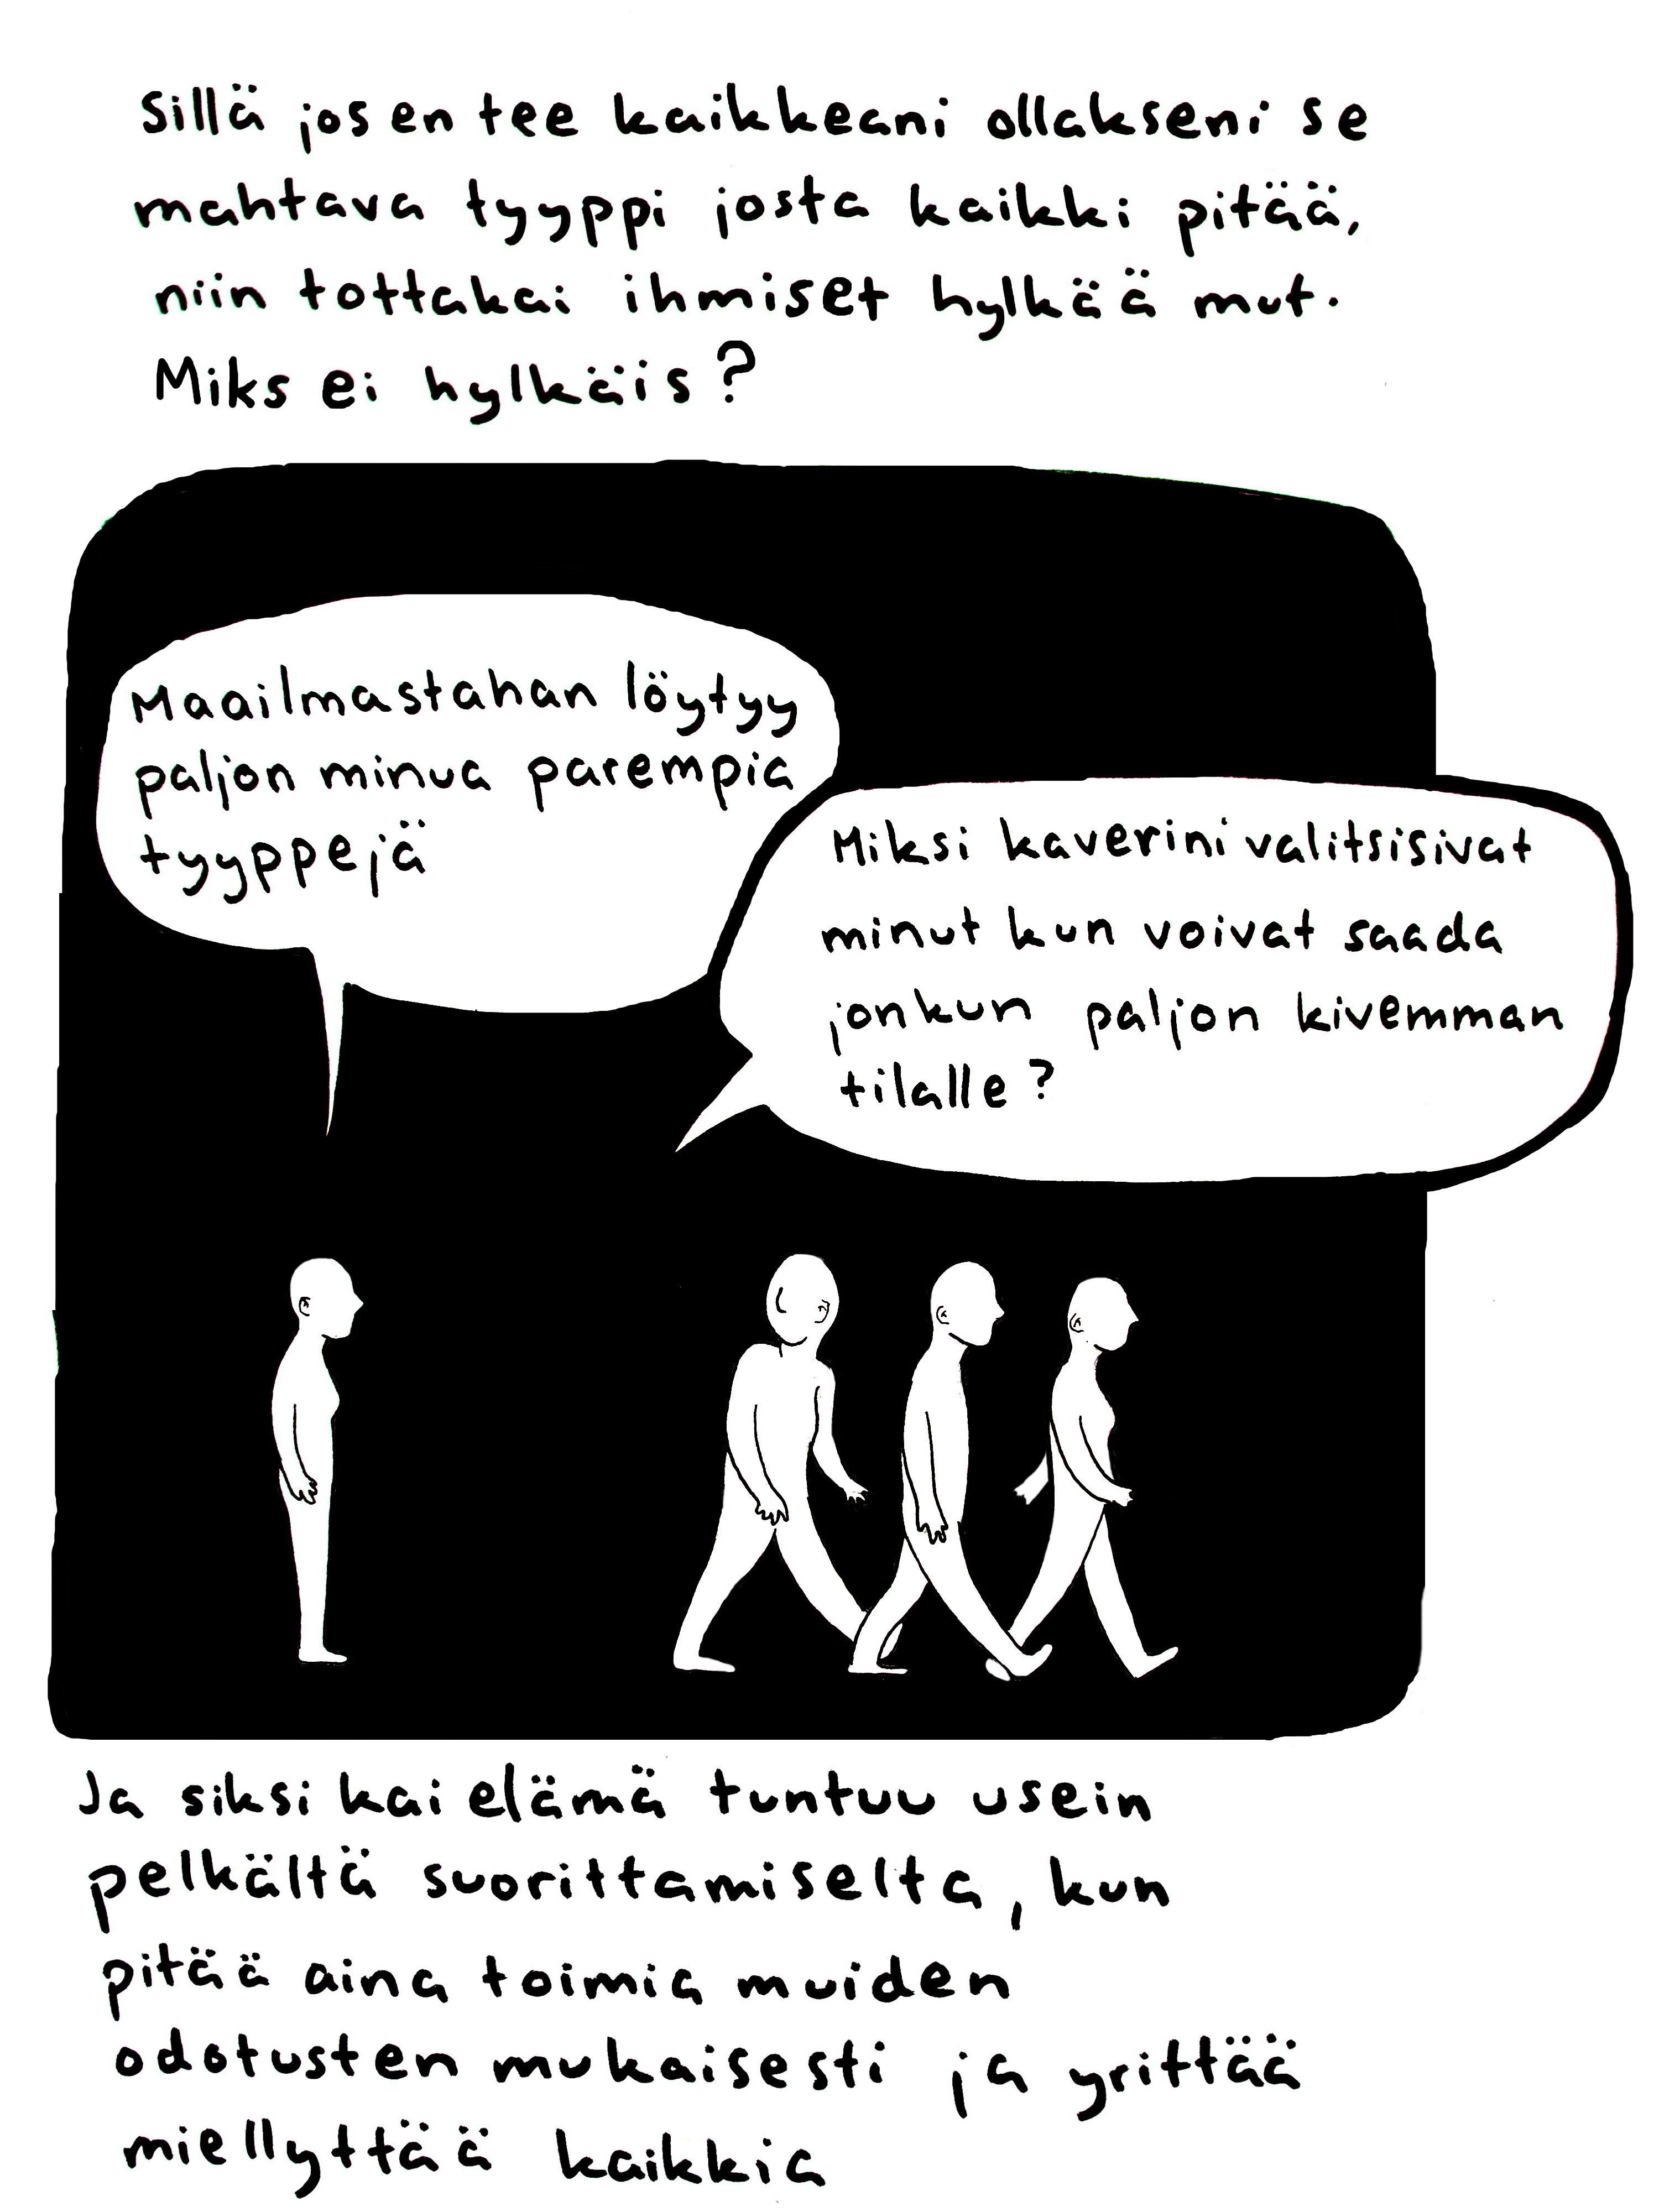 Sillä jos en tee kaikkeani ollakseni se
mahtava tyyppi josta kaikki pitää,
niin tottakai ihmiset hylkää mut.
Miks ei hylkäis?
Maailmastahan löytyy
paljon minua parempia
tyyppejä
Miksi kaverini valitsisivat
minut kun voivat saada
jonkun paljon kivemman
tilalle?
Ja siksi kai elämä tuntuu usein
pelkältä suorittamiselta, kun
pitää aina toimia muiden
odotusten mukaisesti ja yrittää
miellyttää kaikkia